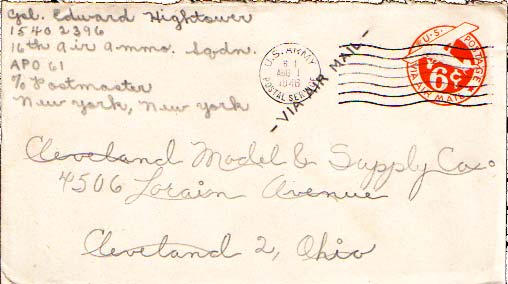 Cpl. Edward Hightower
15402396
16th Air Ammo. Sqdn.
APO 61
% Postmaster
New York, New York
U.S. ARMY
AUG 1
1946
POSTAL SERVICE
-VIA AIR MAIL-
U.S. POSTAGE
6¢
VIA AIR MAIL
Cleveland Model & Supply Co:
4506 Lorain Avenue
Cleveland 2, Ohio